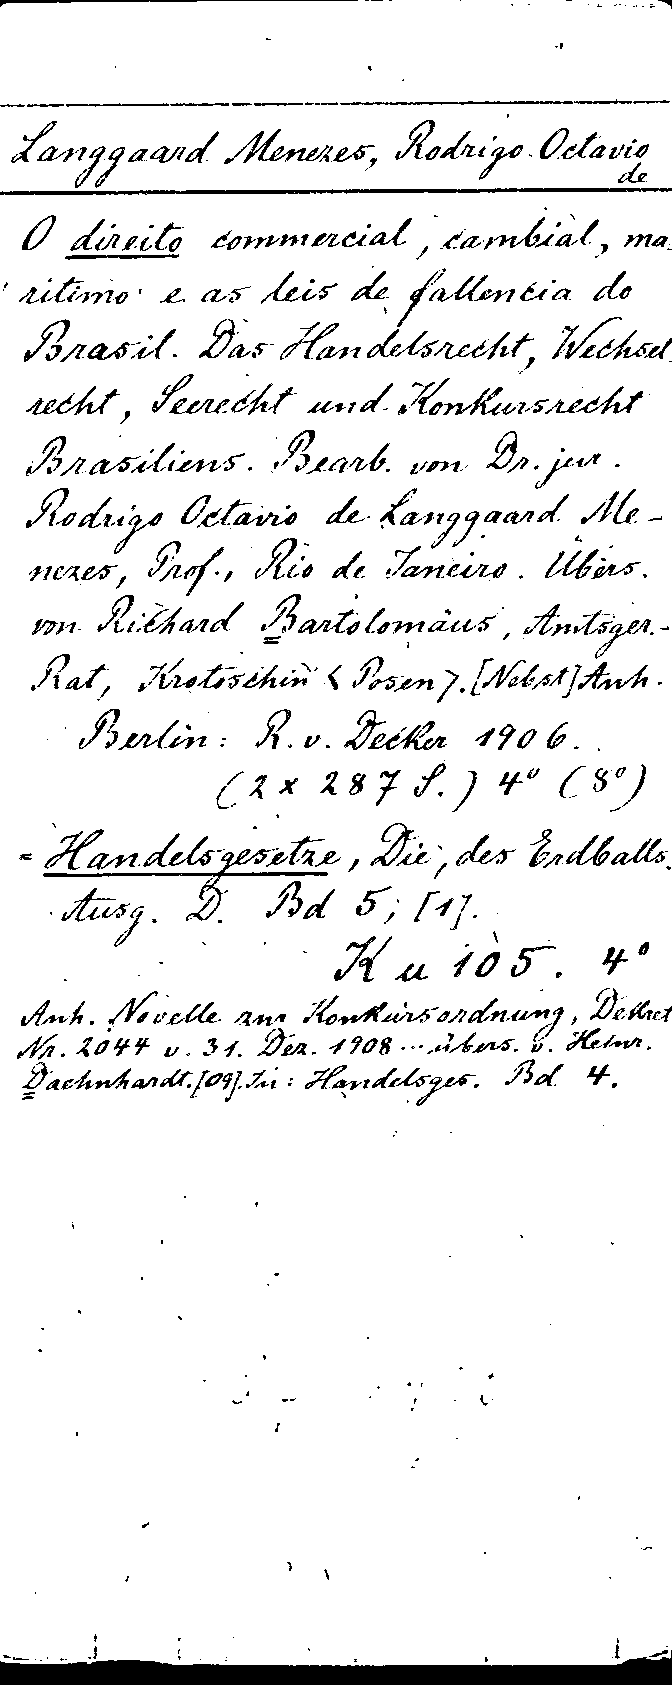 Langgaard Menezes, Rodrigo Octavio
de
O direito commercial, cambial, ma-
ritimo e as leis de fallencia do
Brasil. Das Handelsrecht, Wechsel-
recht, Seerecht und Konkursrecht
Brasiliens. Bearb. von Dr. jur.
Rodrigo Octavio de Langgaard Me-
nezes, Prof., Rio de Janeiro. Übers.
von Richard Bartolomäus, Amtsger.-
Rat, Krotoschin < Posen >. [Nebst] Anh.
Berlin: R. v. Decker 1906.
(2 x 287 S.) 4° (8°)
= Handelsgesetze, Die, des Erdballs.
Ausg. D. Bd 5, [1].
K u 105. 4°
Anh. Novelle zur Konkursordnung, Dekret
Nr. 2044 v. 31. Dez. 1908 ... übers. v. Heinr.
Daehnhardt. [09]. In: Handelsges. Bd 4.